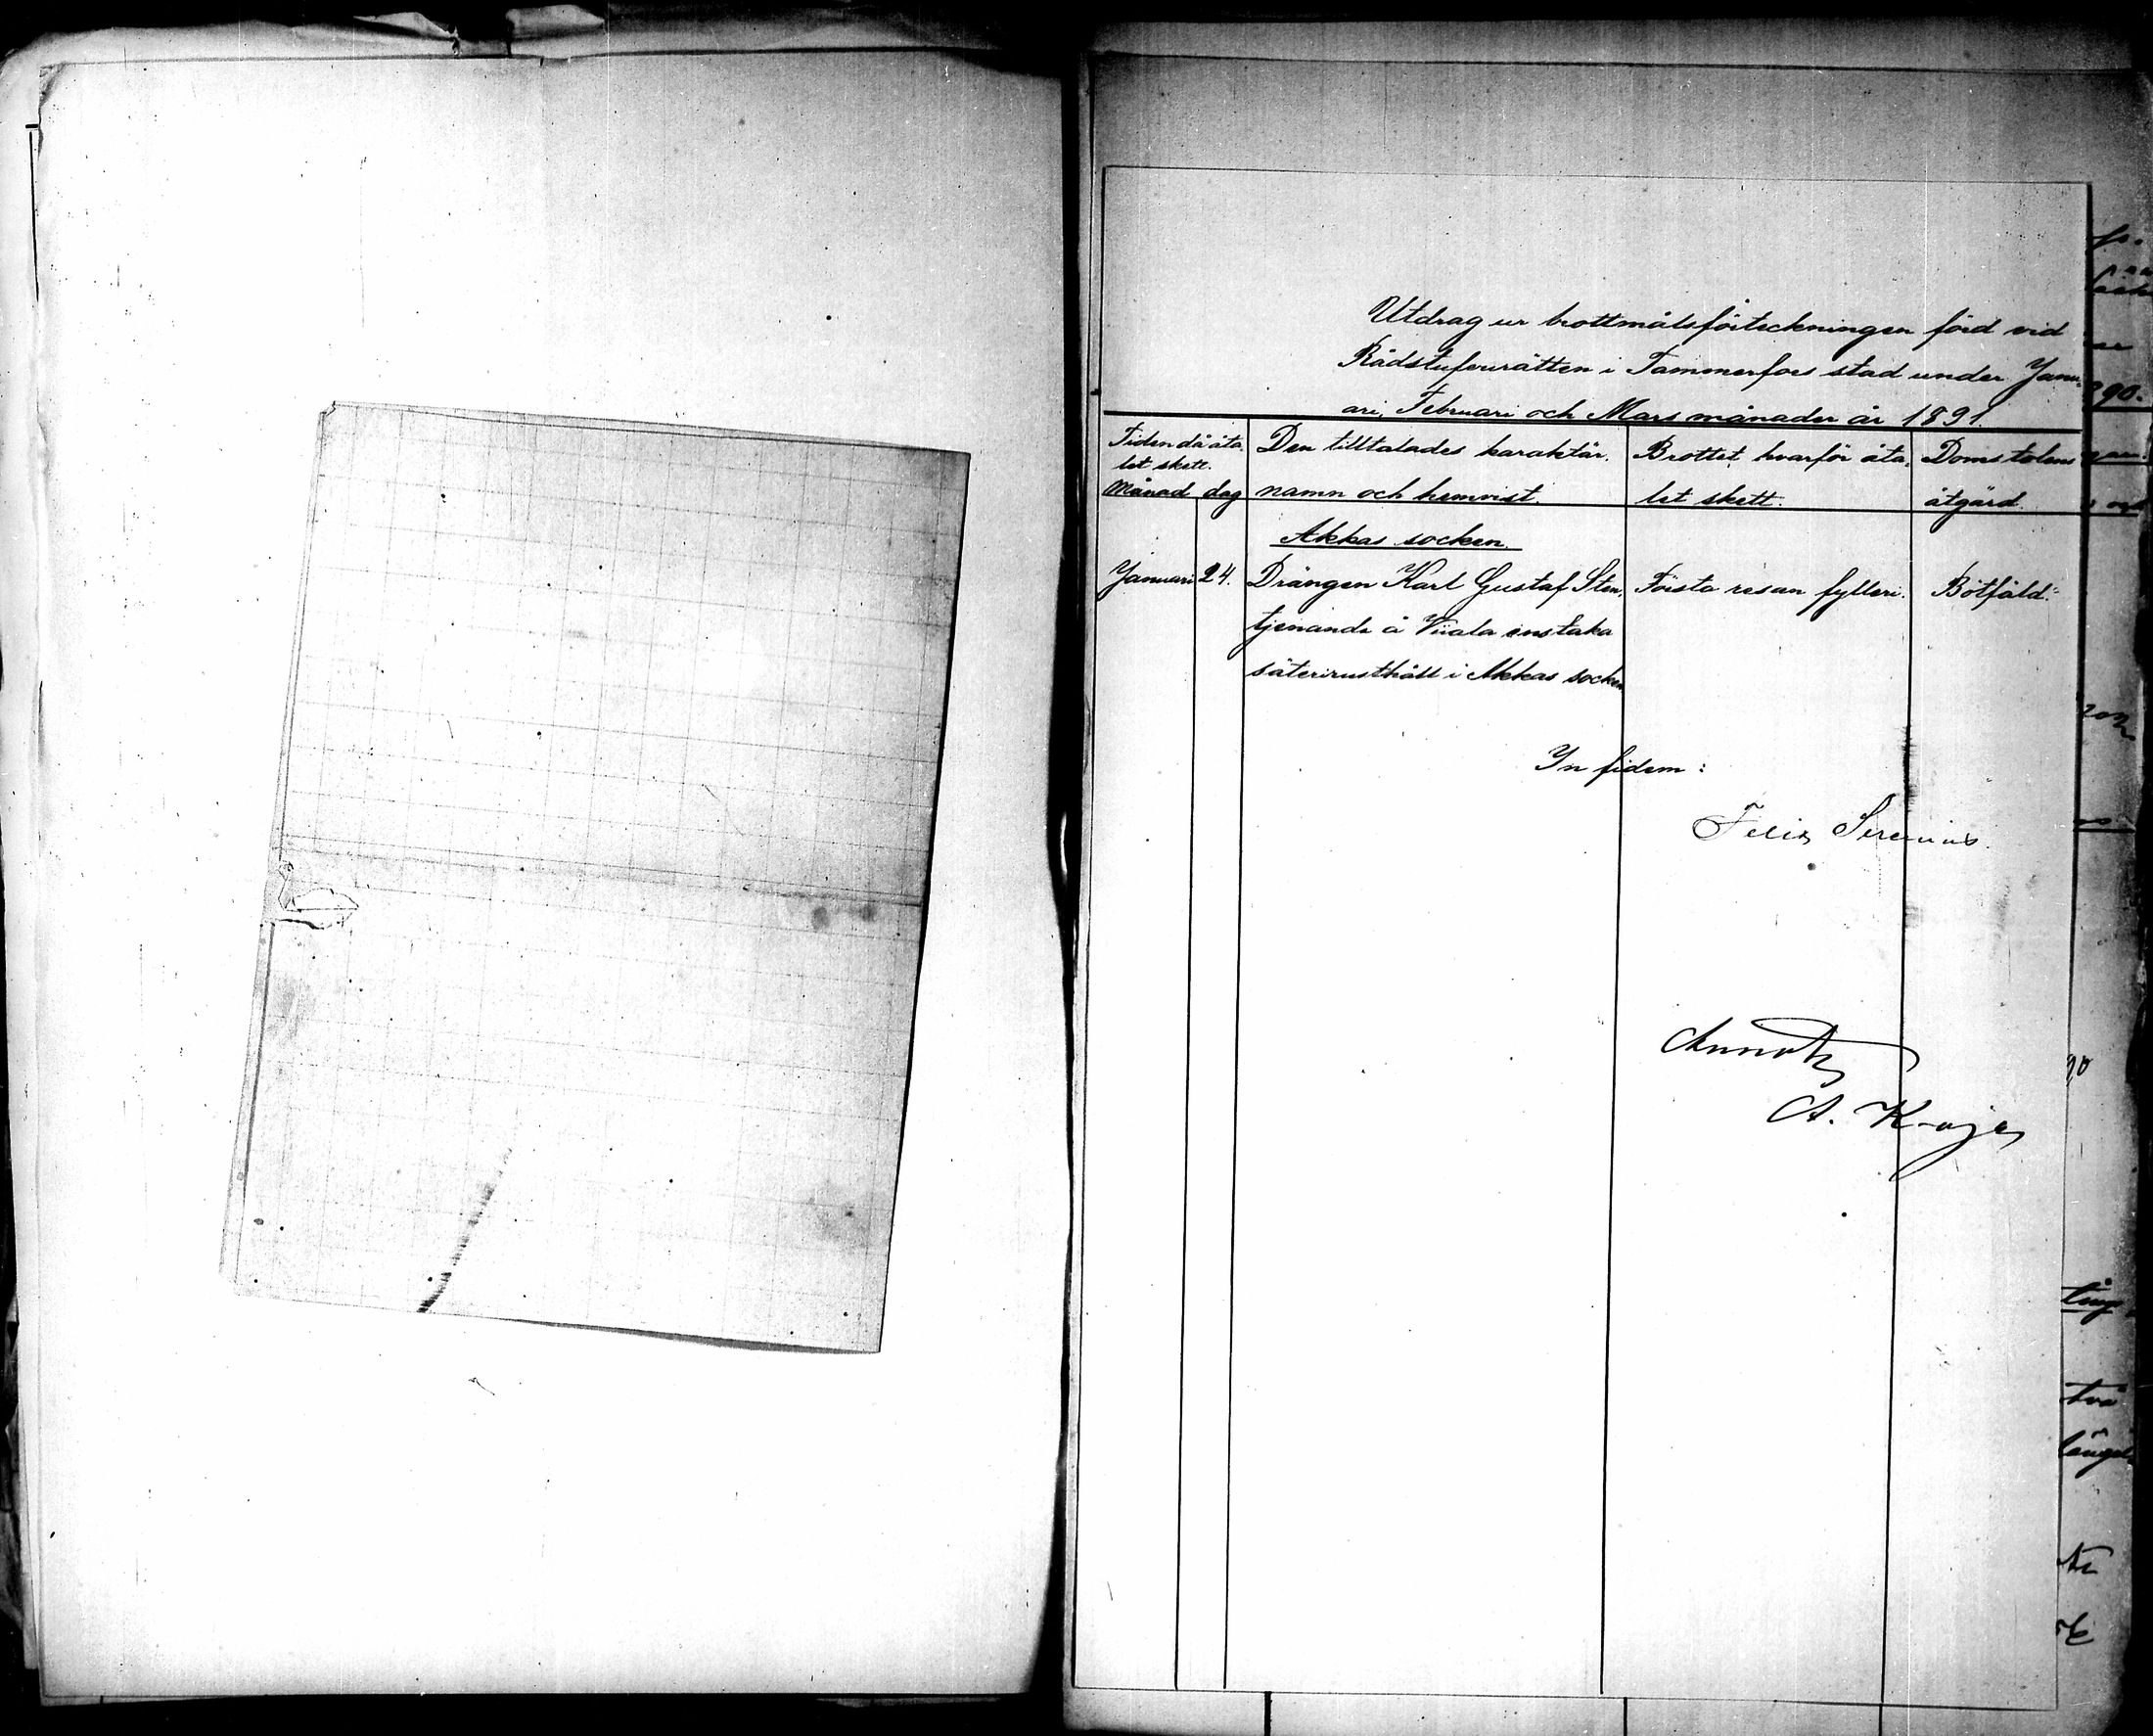 Utdrag ur brottmålsförteckningen förd vid
Rådstufvurätten i Tammerfors stad under Janu-
ari, Februari och Mars månader år 1891.
Tiden då åta-
let skett.
Månad dag
Den tilltalades karaktär,
namn och hemvist.
Brottet hvarför åta-
let skett.
Domstolens
åtgärd.
Akkas socken.
Januari 24. Drängen Karl Gustaf Sten, Första resan fylleri. Bötfäld.
tjenande å Viiala enstaka
säterirusthåll i Akkas socken
In fidem:
Felix Sirenius.
Annot.
A.
90.
två